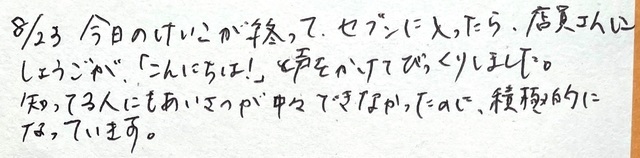 8/23 今日のけいこが終って、セブンに入ったら、店員さんに
しょうごが、「こんにちは!」と声をかけてびっくりしました。
知ってる人にもあいさつが中々できなかったのに、積極的に
なっています。